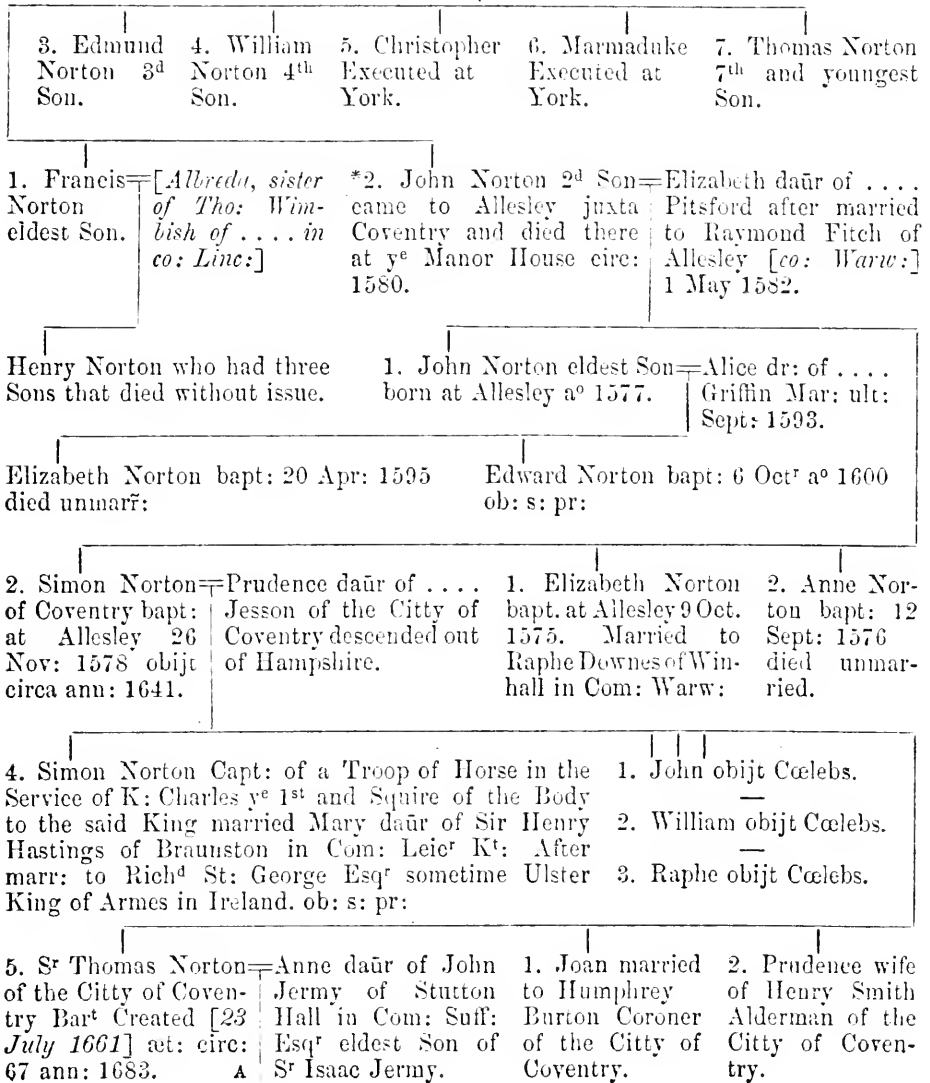 3. Edmund Norton 3ᵈ Son.
4. William Norton 4ᵗʰ Son.
5. Christopher Executed at York.
6. Marmaduke Executed at York.
7. Thomas Norton 7ᵗʰ and youngest Son.
1. Francis Norton eldest Son.
[Albreda, sister
of Tho: Wim-
bish of . . . . in
co: Linc:]
*2. John Norton 2ᵈ Son
came to Allesley juxta
Coventry and died there
at yᵉ Manor House circ:
1580.
Elizabeth daūr of . . . .
Pitsford after married
to Raymond Fitch of
Allesley [co: Warw:]
1 May 1582.
Henry Norton who had three
Sons that died without issue.
1. John Norton eldest Son
born at Allesley aº 1577.
Alice dr: of . . . .
Griffin Mar: ult:
Sept: 1593.
Elizabeth Norton bapt: 20 Apr: 1595
died unmarr̃:
Edward Norton bapt: 6 Octʳ aº 1600
ob: s: pr:
2. Simon Norton
of Coventry bapt:
at Allesley 26
Nov: 1578 obijt
circa ann: 1641.
Prudence daūr of . . . .
Jesson of the Citty of
Coventry descended out
of Hampshire.
1. Elizabeth Norton
bapt. at Allesley 9 Oct.
1575. Married to
Raphe Downes of Win-
hall in Com: Warw:
2. Anne Nor-
ton bapt: 12
Sept: 1576
died unmar-
ried.
4. Simon Norton Capt: of a Troop of Horse in the
Service of K: Charles yᵉ 1ˢᵗ and Squire of the Body
to the said King married Mary daūr of Sir Henry
Hastings of Braunston in Com: Leicʳ Kᵗ: After
marr: to Richᵈ St: George Esqʳ sometime Ulster
King of Armes in Ireland. ob: s: pr:
1. John obijt Cœlebs.
—
2. William obijt Cœlebs.
—
3. Raphe obijt Cœlebs.
5. Sʳ Thomas Norton
of the Citty of Coven-
try Barᵗ Created [23
July 1661] æt: circ:
67 ann: 1683. A
Anne daūr of John
Jermy of Stutton
Hall in Com: Suff:
Esqʳ eldest Son of
Sʳ Isaac Jermy.
1. Joan married
to Humphrey
Burton Coroner
of the Citty of
Coventry.
2. Prudence wife
of Henry Smith
Alderman of the
Citty of Coven-
try.